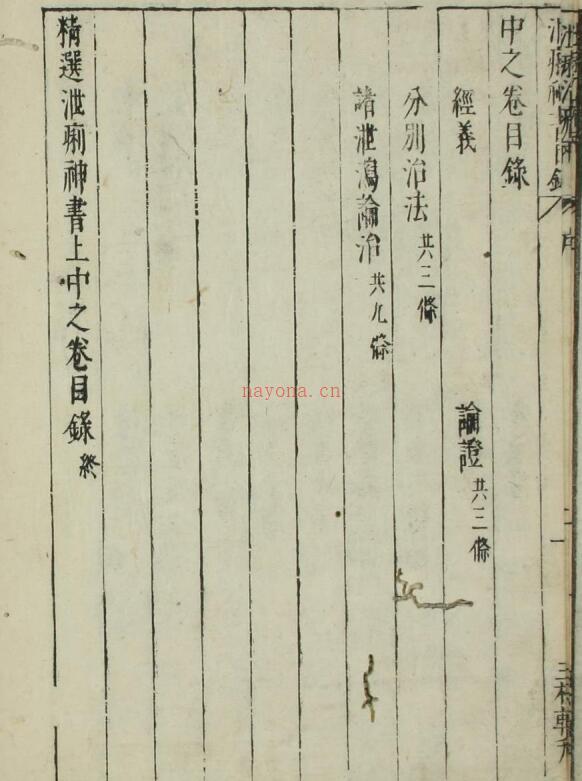 中之卷目錄
經義 論證 共三條
分別治法 共三條
諸泄瀉論治 共九條
精選泄痢神書上中之卷目錄 終
nayona.cn